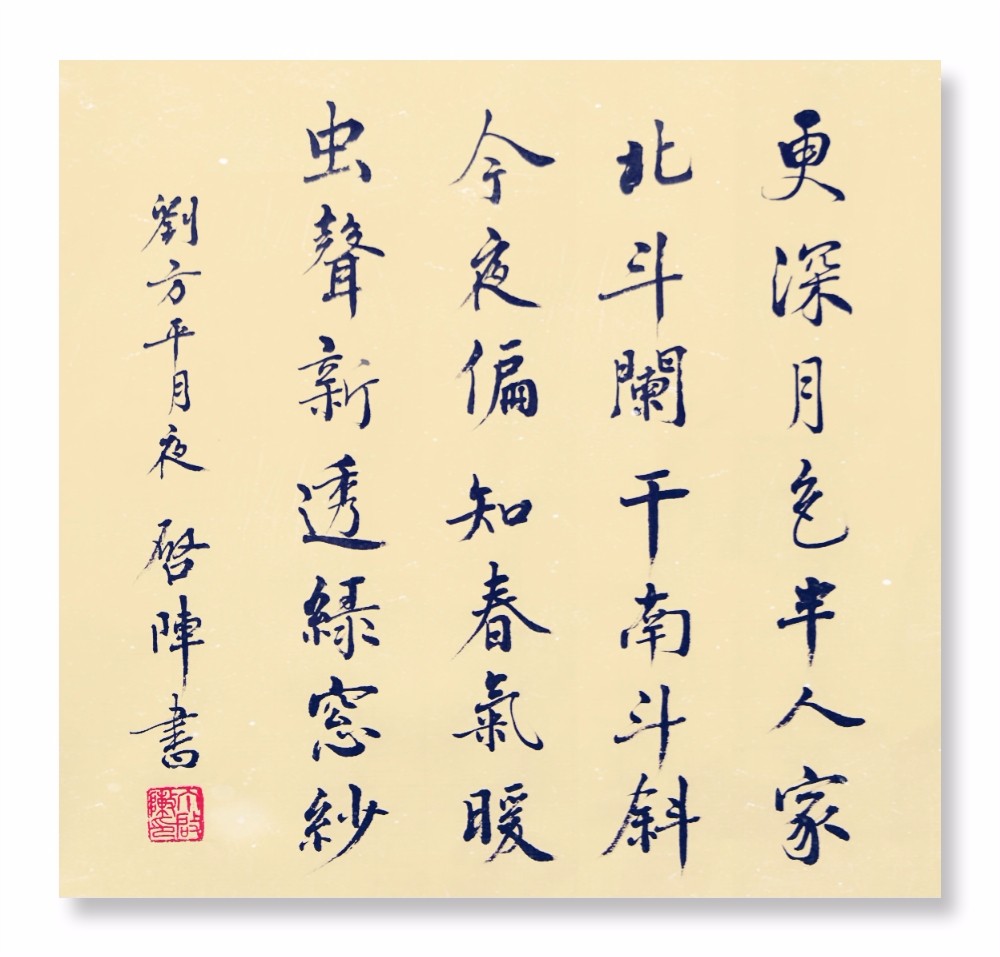 更深月色半人家
北斗闌干南斗斜
今夜偏知春氣暖
虫聲新透綠窓紗
劉方平月夜 啓陣書